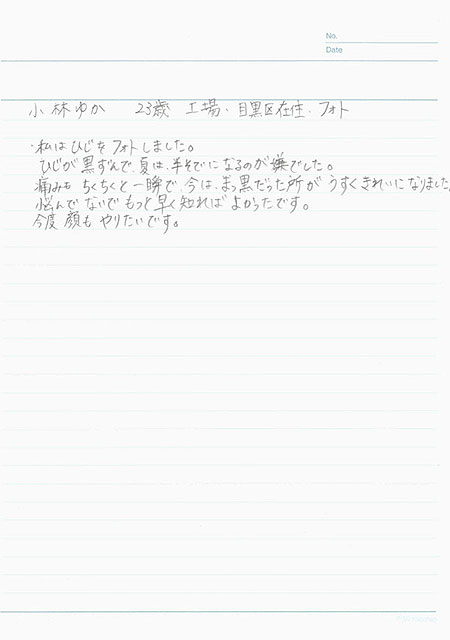 No.
Date
小林ゆか 23歳 工場・目黒区在住・フォト
・私はひじをフォトしました。
ひじが黒ずんで、夏は、半そでになるのが嫌でした。
痛みも ちくちくと一瞬で、今は、まっ黒だった所が うすくきれいになりました。
悩んで ないで もっと早く知れば よかったです。
今度 顔も やりたいです。